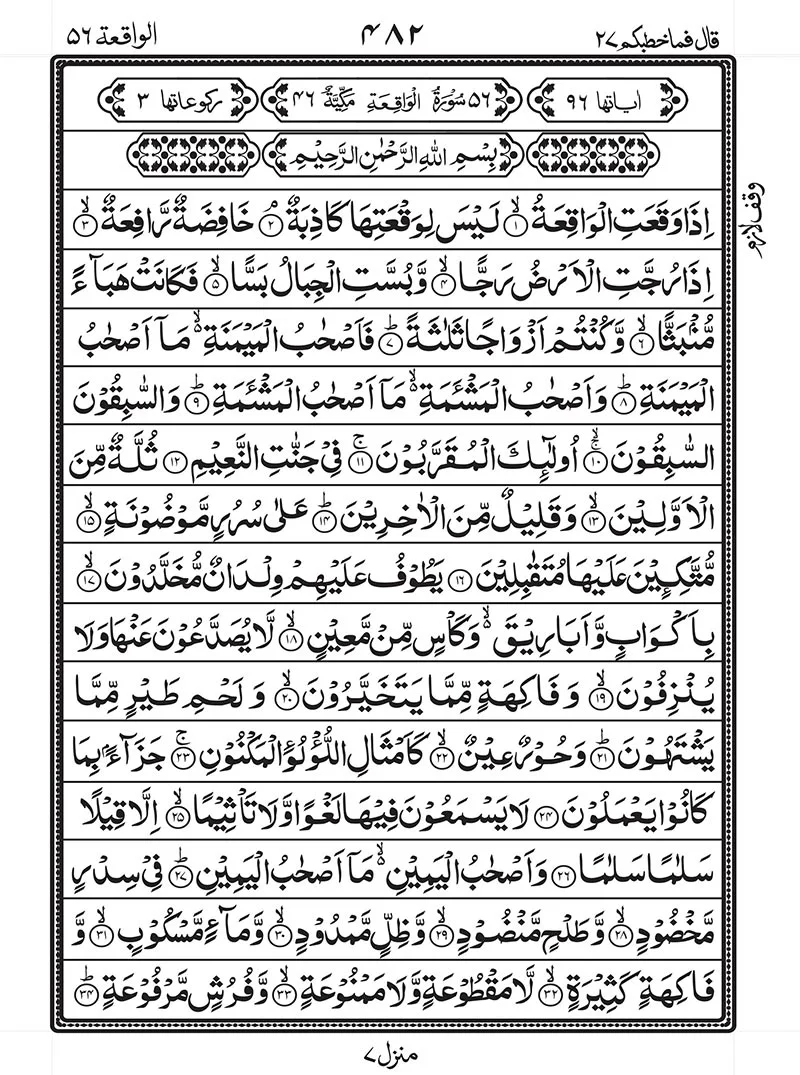 قال فماخطبكم ۲۷ ۴۸۲ الواقعة ۵۶
اٰیاتها ۹۶ ۵۶ سُوْرَةُ الْوَاقِعَةِ مَكِّيَّةٌ ۴۶ ركوعاتها ۳
بِسْمِ اللهِ الرَّحْمٰنِ الرَّحِيْمِ
اِذَا وَقَعَتِ الْوَاقِعَةُۙ۝۱ لَيْسَ لِوَقْعَتِهَا كَاذِبَةٌۘ۝۲ خَافِضَةٌ رَّافِعَةٌۙ۝۳
وقف لازم
اِذَا رُجَّتِ الْاَرْضُ رَجًّاۙ۝۴ وَّبُسَّتِ الْجِبَالُ بَسًّاۙ۝۵ فَكَانَتْ هَبَآءً
مُّنْۢبَثًّاۙ۝۶ وَّكُنْتُمْ اَزْوَاجًا ثَلٰثَةًؕ۝۷ فَاَصْحٰبُ الْمَيْمَنَةِ ۙ۬ مَاۤ اَصْحٰبُ
الْمَيْمَنَةِؕ۝۸ وَاَصْحٰبُ الْمَشْـَٔمَةِ ۙ۬ مَاۤ اَصْحٰبُ الْمَشْـَٔمَةِؕ۝۹ وَالسّٰبِقُوْنَ
السّٰبِقُوْنَۚۙ۝۱۰ اُولٰٓئِكَ الْمُقَرَّبُوْنَۚ۝۱۱ فِيْ جَنّٰتِ النَّعِيْمِ۝۱۲ ثُلَّةٌ مِّنَ
الْاَوَّلِيْنَۙ۝۱۳ وَقَلِيْلٌ مِّنَ الْاٰخِرِيْنَؕ۝۱۴ عَلٰى سُرُرٍ مَّوْضُوْنَةٍۙ۝۱۵
مُّتَّكِـِٕيْنَ عَلَيْهَا مُتَقٰبِلِيْنَ۝۱۶ يَطُوْفُ عَلَيْهِمْ وِلْدَانٌ مُّخَلَّدُوْنَۙ۝۱۷
بِاَكْوَابٍ وَّاَبَارِيْقَ ۙ۬ وَكَاْسٍ مِّنْ مَّعِيْنٍۙ۝۱۸ لَّا يُصَدَّعُوْنَ عَنْهَا وَلَا
يُنْزِفُوْنَۙ۝۱۹ وَفَاكِهَةٍ مِّمَّا يَتَخَيَّرُوْنَۙ۝۲۰ وَلَحْمِ طَيْرٍ مِّمَّا
يَشْتَهُوْنَؕ۝۲۱ وَحُوْرٌ عِيْنٌۙ۝۲۲ كَاَمْثَالِ اللُّؤْلُؤِ الْمَكْنُوْنِۚ۝۲۳ جَزَآءًۢ بِمَا
كَانُوْا يَعْمَلُوْنَ۝۲۴ لَا يَسْمَعُوْنَ فِيْهَا لَغْوًا وَّلَا تَاْثِيْمًاۙ۝۲۵ اِلَّا قِيْلًا
سَلٰمًا سَلٰمًا۝۲۶ وَاَصْحٰبُ الْيَمِيْنِ ۙ۬ مَاۤ اَصْحٰبُ الْيَمِيْنِؕ۝۲۷ فِيْ سِدْرٍ
مَّخْضُوْدٍۙ۝۲۸ وَّطَلْحٍ مَّنْضُوْدٍۙ۝۲۹ وَّظِلٍّ مَّمْدُوْدٍۙ۝۳۰ وَّمَآءٍ مَّسْكُوْبٍۙ۝۳۱ وَّ
فَاكِهَةٍ كَثِيْرَةٍۙ۝۳۲ لَّا مَقْطُوْعَةٍ وَّلَا مَمْنُوْعَةٍۙ۝۳۳ وَّفُرُشٍ مَّرْفُوْعَةٍؕ۝۳۴
منزل ۷